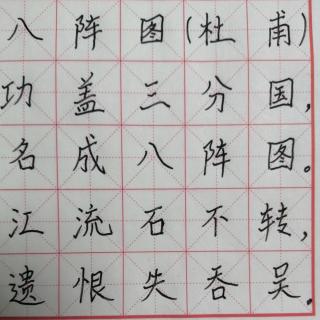 八阵图(杜甫)
功盖三分国,
名成八阵图。
江流石不转,
遗恨失吞吴.